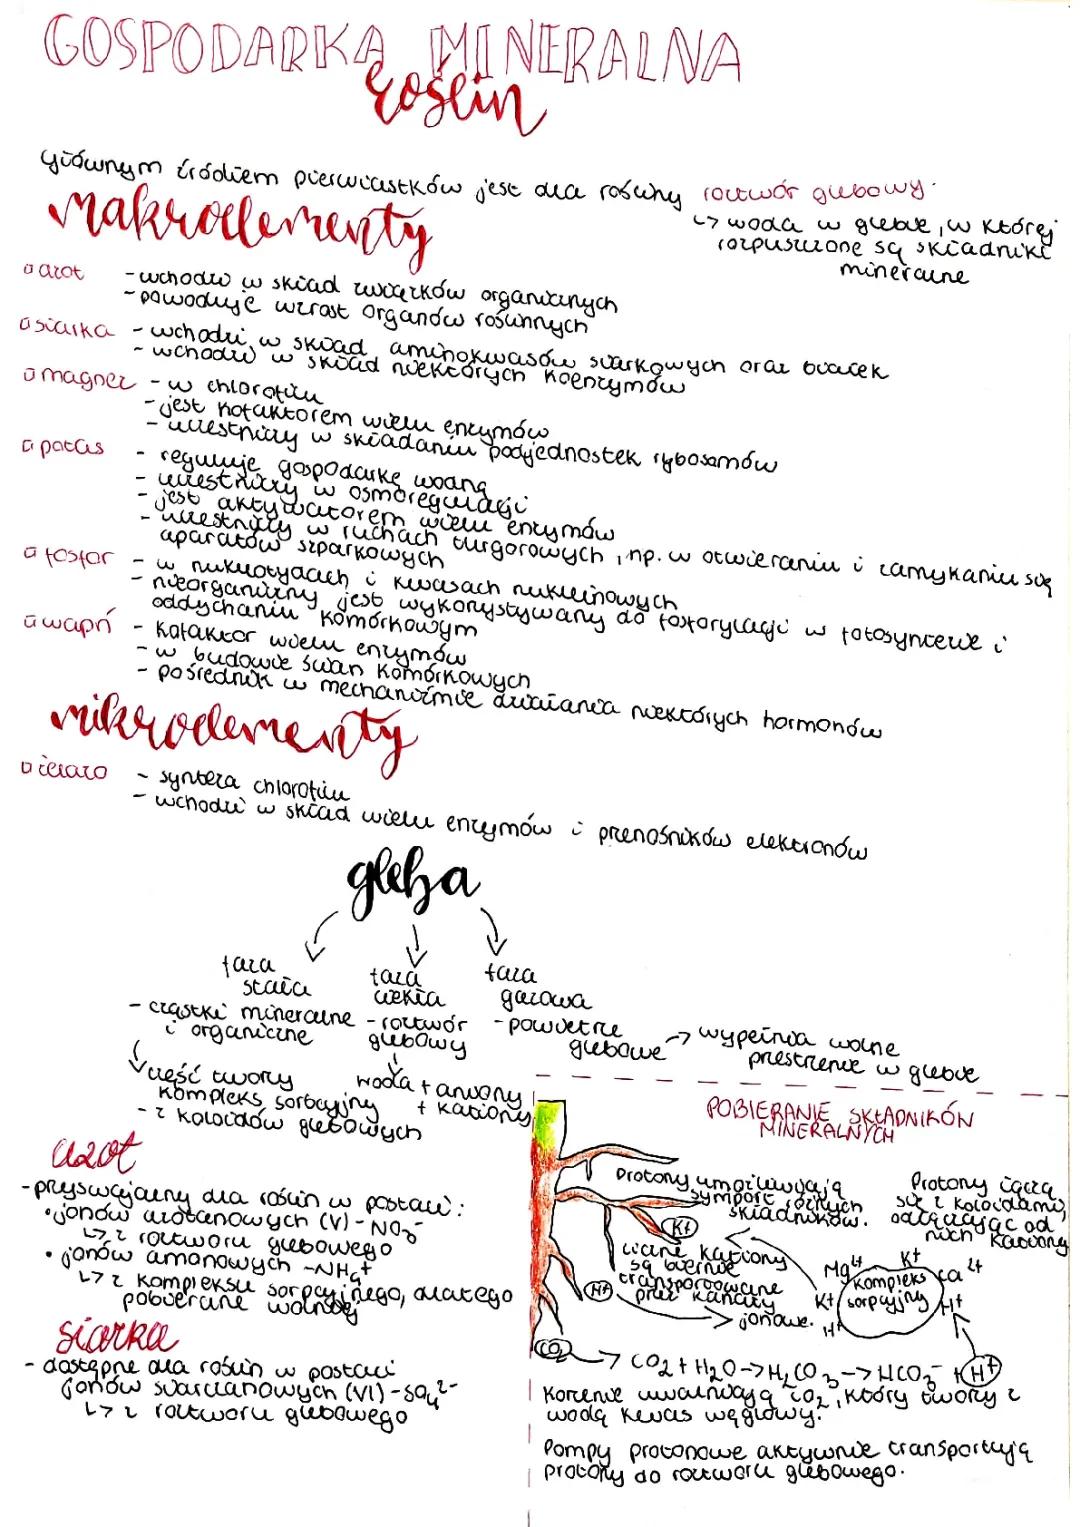 GOSPODARKA MINERALNA
roślin
Głównym źródłem pierwiastków jest dla rośliny roztwór glebowy.
↳ woda w glebie, w której
rozpuszczone są składniki
mineralne
makroelementy
azot
- wchodzi w skład związków organicznych
- powoduje wzrost organów roślinnych
siarka
- wchodzi w skład aminokwasów siarkowych oraz białek
- wchodzi w skład niektórych koenzymów
magnez
- w chlorofilu
- jest kofaktorem wielu enzymów
- uczestniczy w składaniu podjednostek rybosomów
potas
- reguluje gospodarkę wodną
- uczestniczy w osmoregulacji
- jest aktywatorem wielu enzymów
- uczestniczy w ruchach turgorowych, np. w otwieraniu i zamykaniu się
aparatów szparkowych
fosfor
- w nukleotydach i kwasach nukleinowych
- nieorganiczny jest wykorzystywany do fosforylacji w fotosyntezie i
oddychaniu komórkowym
wapń
- kofaktor wielu enzymów
- w budowie ścian komórkowych
- pośrednik w mechanizmie działania niektórych hormonów
mikroelementy
żelazo
- synteza chlorofilu
- wchodzi w skład wielu enzymów i przenośników elektronów
gleba
faza
stała
- cząstki mineralne
i organiczne
część tworzy
kompleks sorbcyjny
- z koloidów glebowych
faza
ciekła
- roztwór
glebowy
woda + aniony
+ kationy
faza
gazowa
- powietrze
glebowe
→ wypełnia wolne
przestrzenie w glebie
azot
- przyswajalny dla roślin w postaci:
• jonów azotanowych (V) - NO3-
↳ z roztworu glebowego
• jonów amonowych - NH4+
↳ z kompleksu sorpcyjnego, dlatego
pobierane wolniej
siarka
- dostępne dla roślin w postaci
jonów siarczanowych (VI) - SO4 2-
↳ z roztworu glebowego
POBIERANIE SKŁADNIKÓW
MINERALNYCH
Protony umożliwiają
symport różnych
składników.
Protony łączą
się z koloidami,
odłączając od
nich kationy
K+
Liczne kationy
są biernie
transportowane
przez kanały
jonowe.
H+
Mg2+
K+
Ca2+
K+
kompleks
sorpcyjny
H+
H+
CO2
→ CO2 + H2O → H2CO3 → HCO3- + H+
Korzenie uwalniają CO2, który tworzy z
wodą kwas węglowy.
Pompy protonowe aktywnie transportują
protony do roztworu glebowego.